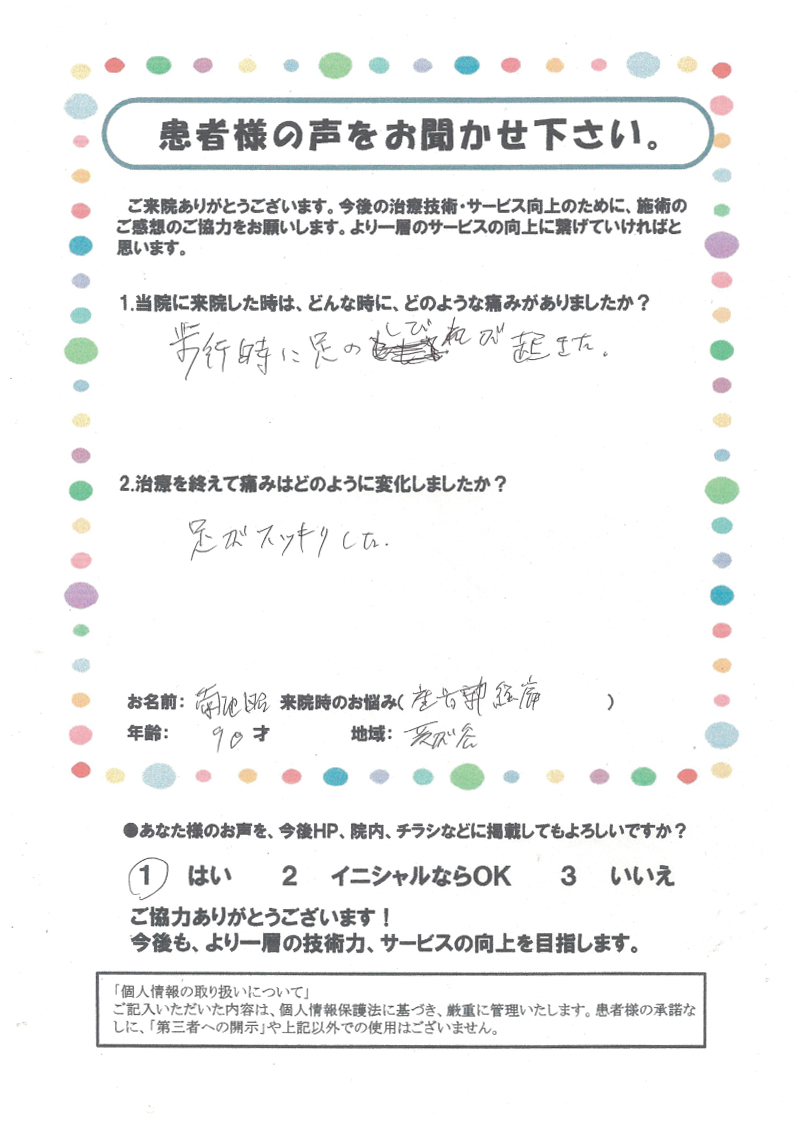 患者様の声をお聞かせ下さい。
ご来院ありがとうございます。今後の治療技術・サービス向上のために、施術の
ご感想のご協力をお願いします。より一層のサービスの向上に繋げていければと
思います。
1.当院に来院した時は、どんな時に、どのような痛みがありましたか？
歩行時に足のしびれが起きた。
2.治療を終えて痛みはどのように変化しましたか？
足がスッキリした.
お名前： 菊地 来院時のお悩み( 坐骨神経痛 )
年齢： 90 才 地域：
●あなた様のお声を、今後HP、院内、チラシなどに掲載してもよろしいですか？
1 はい 2 イニシャルならOK 3 いいえ
ご協力ありがとうございます！
今後も、より一層の技術力、サービスの向上を目指します。
「個人情報の取り扱いについて」
ご記入いただいた内容は、個人情報保護法に基づき、厳重に管理いたします。患者様の承諾な
しに、「第三者への開示」や上記以外での使用はございません。